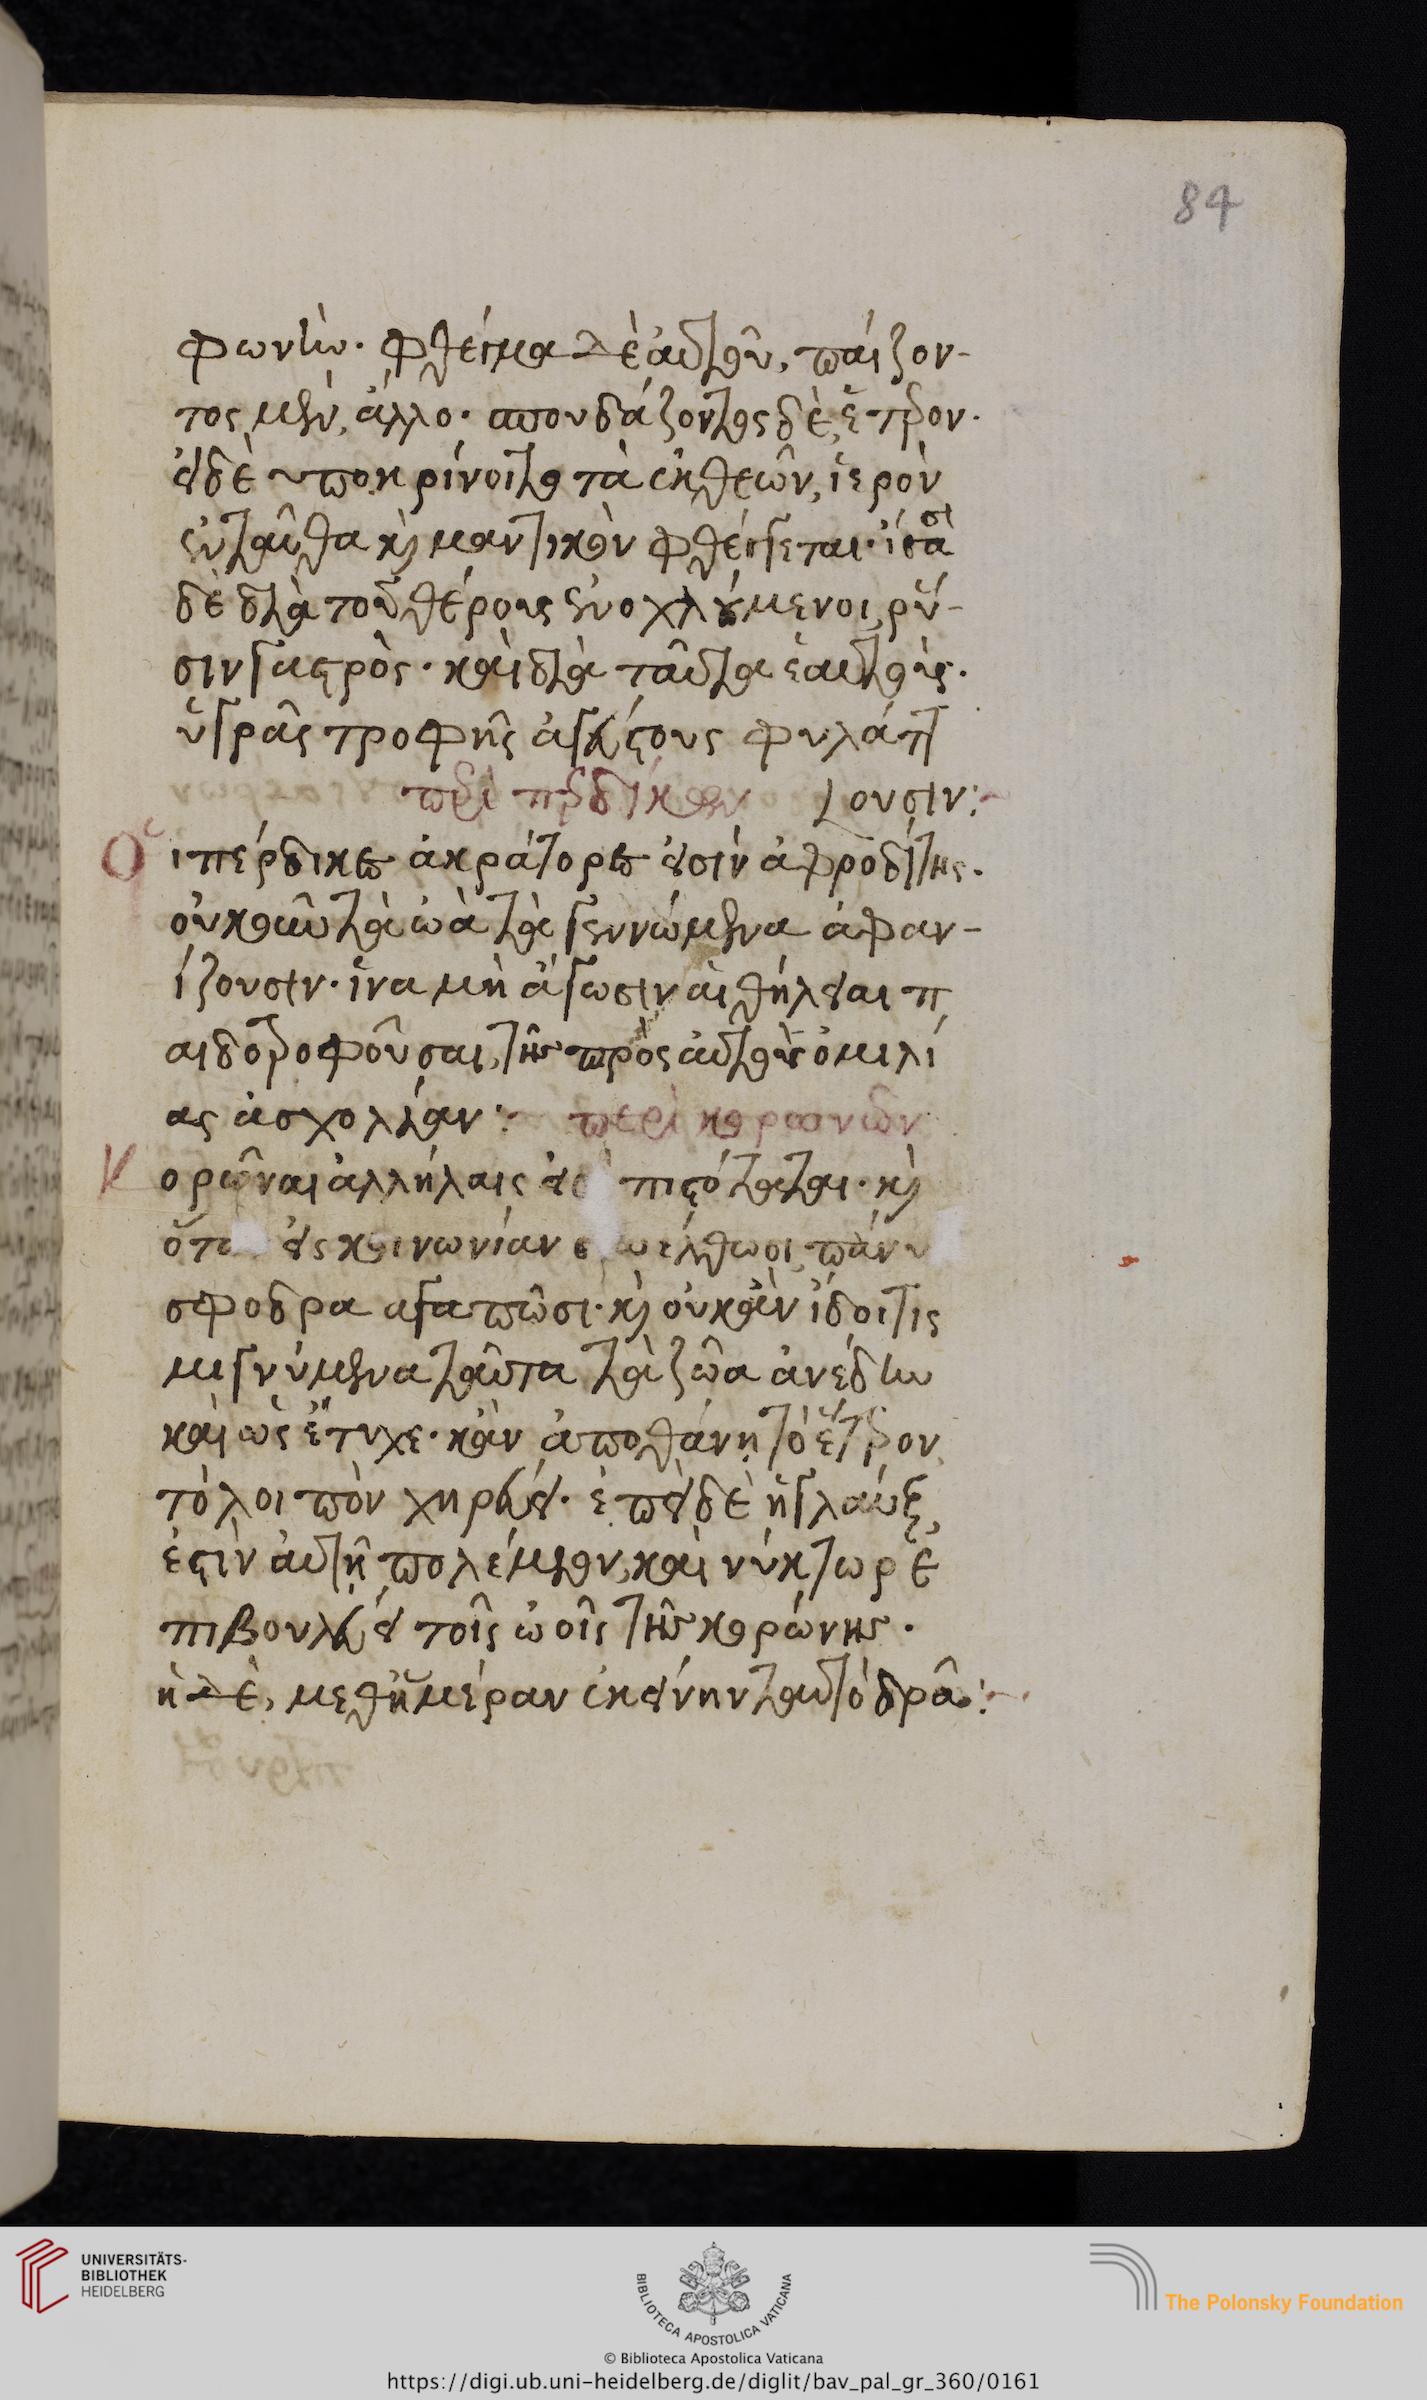 84
φωνὴν. φθέγμα δὲ αὐτοῦ, παίζον-
τος μὲν, ἄλλο. σπουδάζοντος δὲ, ἕτερον.
εἰ δὲ ὑποκρίνοιτο τὰ ἐκ θεῶν, ἱερὸν
ἐνταῦθα καὶ μαντικὸν φθέγγεται. ἴσασι
δὲ διὰ τοῦ θέρους ἐνοχλούμενοι, ῥύ-
σιν γαστρὸς. καὶ διὰ ταῦτα ἑαυτοὺς.
ὑγρᾶς τροφῆς ἀγεύστους φυλάττ
περὶ περδίκων ουσιν:
Οἱ πέρδικες ἀκράτορες εἰσὶν ἀφροδίτης.
οὐκοῦν τὰ ὠὰ τὰ γεννώμενα ἀφαν-
ίζουσιν. ἵνα μὴ ἄγωσιν αἱ θήλειαι π
αιδοτροφοῦσαι, τῆς πρὸς αὐτοὺς ὁμιλί
ας ἀσχολίαν: περὶ κορωνῶν
Κορῶναι ἀλλήλαις εἰσὶ πιστόταται. καὶ
ὅτα εἰς κοινωνίαν συνέλθωσι, πάνυ
σφοδρα αγαπῶσι. καὶ οὐκ ἂν ἴδοι τις
μιγνύμενα ταῦτα τὰ ζῶα ἀνέδην
καὶ ὡς ἔτυχε. κἂν ἀποθάνῃ τὸ ἕτερον,
τὸ λοιπὸν χηρεύει. ἐπεὶ δὲ ἡ γλαύξ,
ἐστὶν αὐτῇ πολέμιον, καὶ νύκτωρ ἐ
πιβουλεύει τοῖς ὠοῖς τῆς κορώνης.
ἡ δὲ, μεθ' ἡμέραν ἐκείνην ταυτὸ δρᾶ:
UNIVERSITÄTS-
BIBLIOTHEK
HEIDELBERG
BIBLIOTECA APOSTOLICA VATICANA
The Polonsky Foundation
© Biblioteca Apostolica Vaticana
https://digi.ub.uni-heidelberg.de/diglit/bav_pal_gr_360/0161